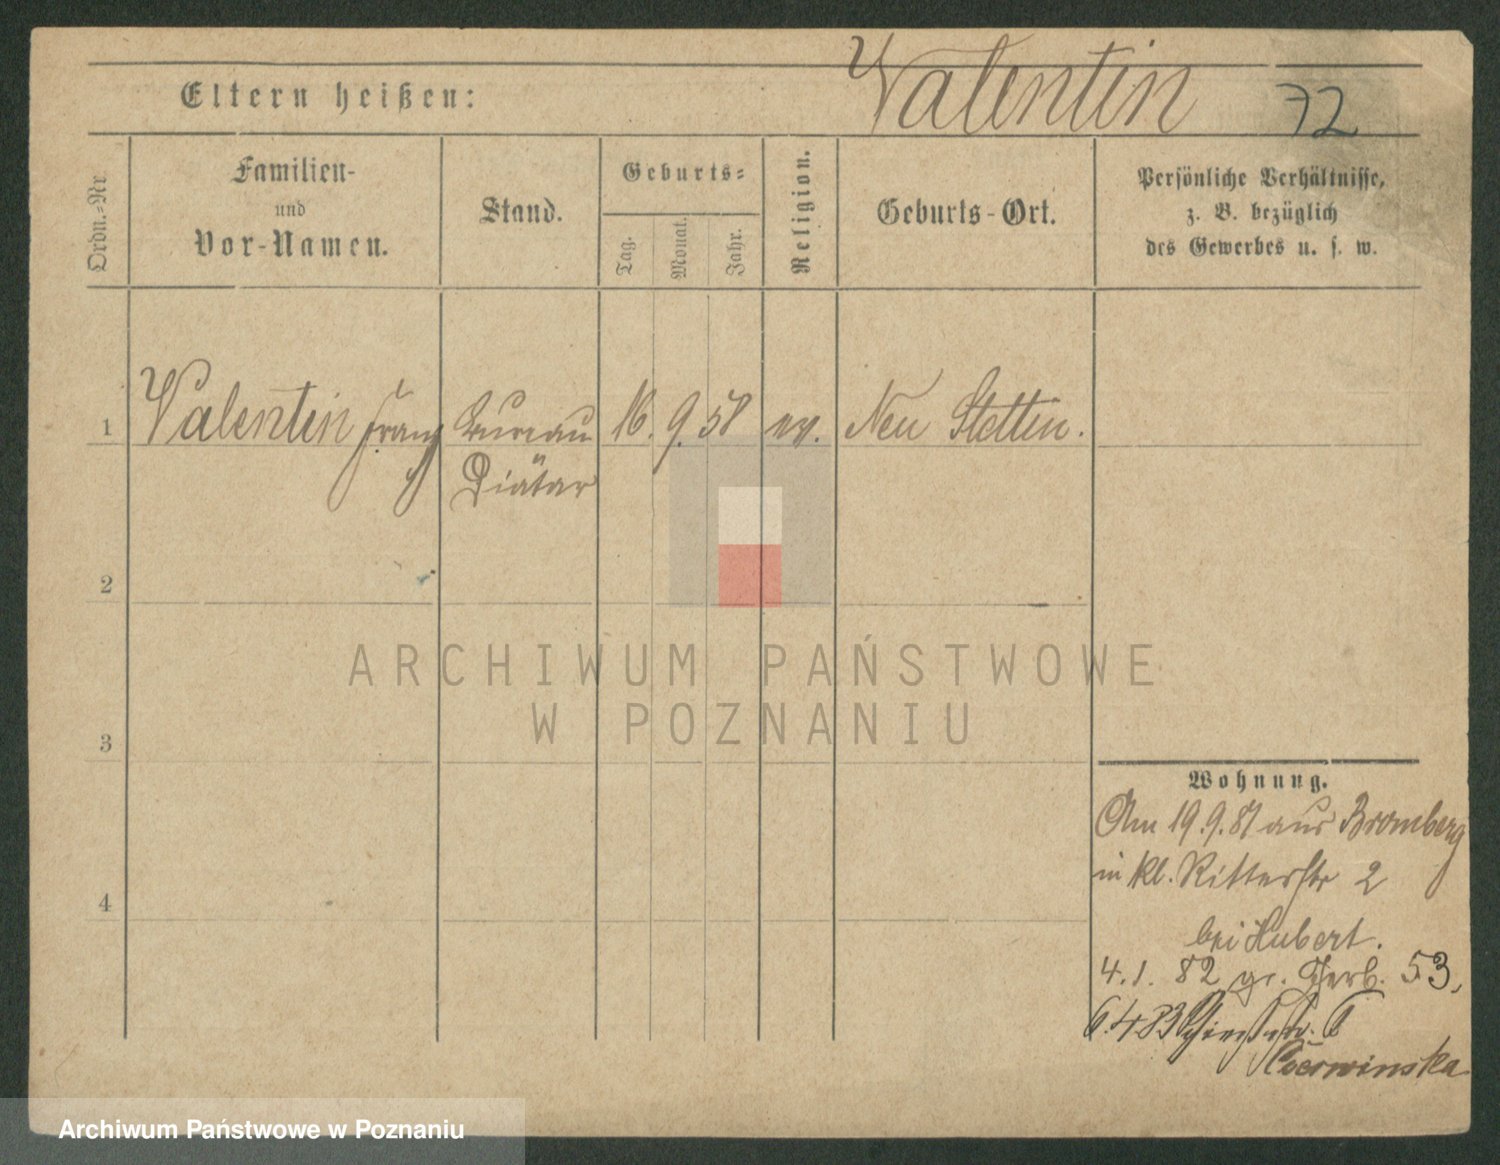 Eltern heißen:
Valentin 72
Ordn.-Nr.
Familien-
und
Vor-Namen.
Stand.
Geburts-
Tag.
Monat.
Jahr.
Religion.
Geburts-Ort.
Persönliche Verhältnisse,
z. B. bezüglich
des Gewerbes u. s. w.
1 Valentin Franz Bureau 16. 9. 58 ev. Neu Stettin.
Diätar
2
ARCHIWUM PAŃSTWOWE
W POZNANIU
3
Wohnung.
Am 19.9.81 aus Bromberg
in kl. Ritterstr 2
bei Hubert.
4
4.1. 82 gr. Gerb. 53,
6.4.83
Czerwinska
Archiwum Państwowe w Poznaniu